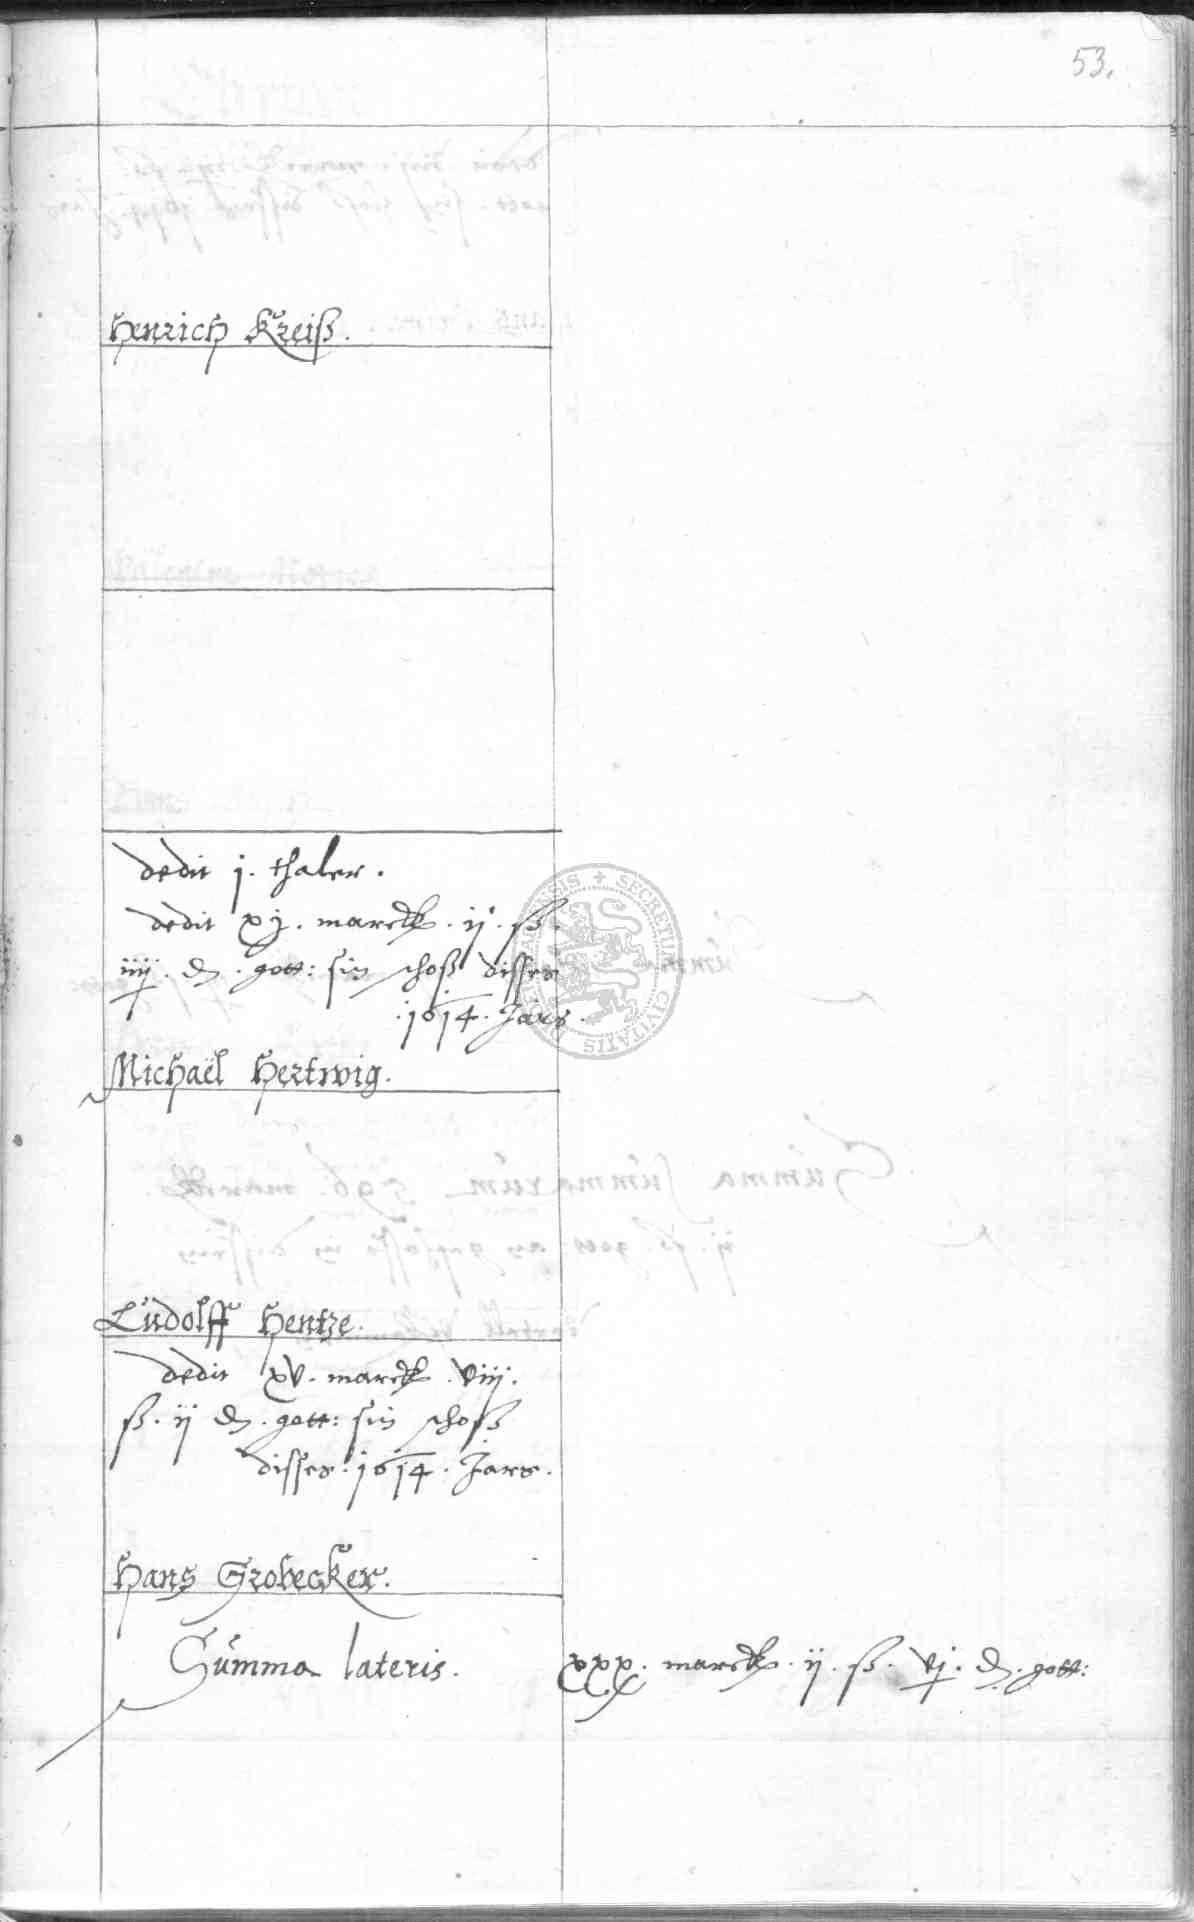 53.
Henrich Kreiß.
dedit j. thaler.
dedit xj. marck. ij. ß.
iiij. ₰. gott: sin schoß disses
.1614. Jars.
Michaël Hertwig.
Lüdolff Hentze.
dedit xv. marck. viij.
ß. ij ₰. gott: sin schoß
disses. 1614. Jars.
Hans Grobecker.
Summa lateris. xxx. marck. ij. ß. vj. ₰. gott:
SECRETUM CIVITATIS